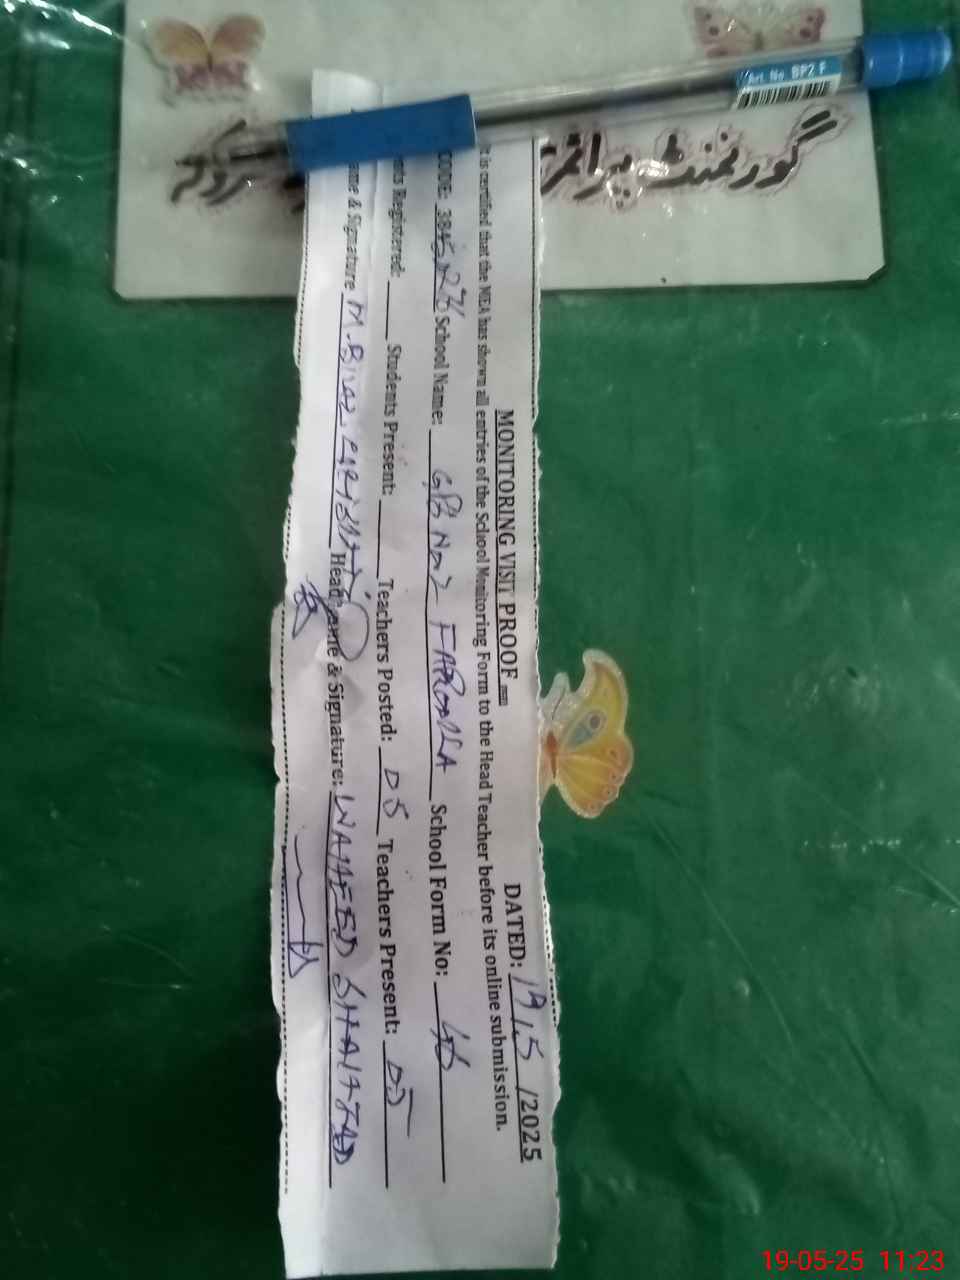 Art. No. BP2 F
گورنمنٹ پرائمری
MONITORING VISIT PROOF DATED: 19/5/2025
It is certified that the MEA has shown all entries of the School Monitoring Form to the Head Teacher before its online submission.
CODE: School Name: GPS No 2 School Form No: 46
nts Registered: ____ Students Present: ____ Teachers Posted: 05 Teachers Present: 05
ame & Signature Head Name & Signature: WAHEED SHAHZAD
19-05-25 11:23